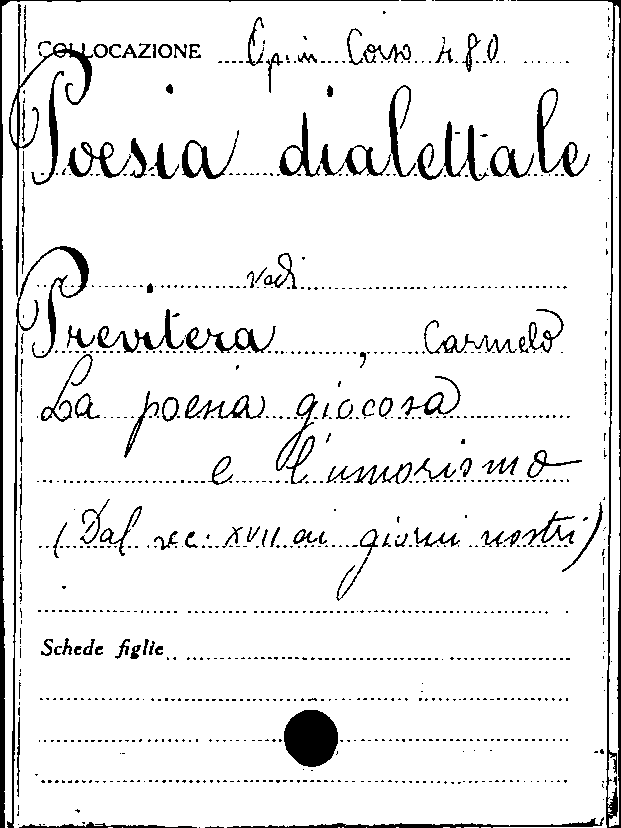 COLLOCAZIONE Op. in Corso 480
Poesia dialettale
vedi
Previtera, Carmelo
La poesia giocosa
e l'umorismo
(Dal sec. XVII ai giorni nostri)
Schede figlie